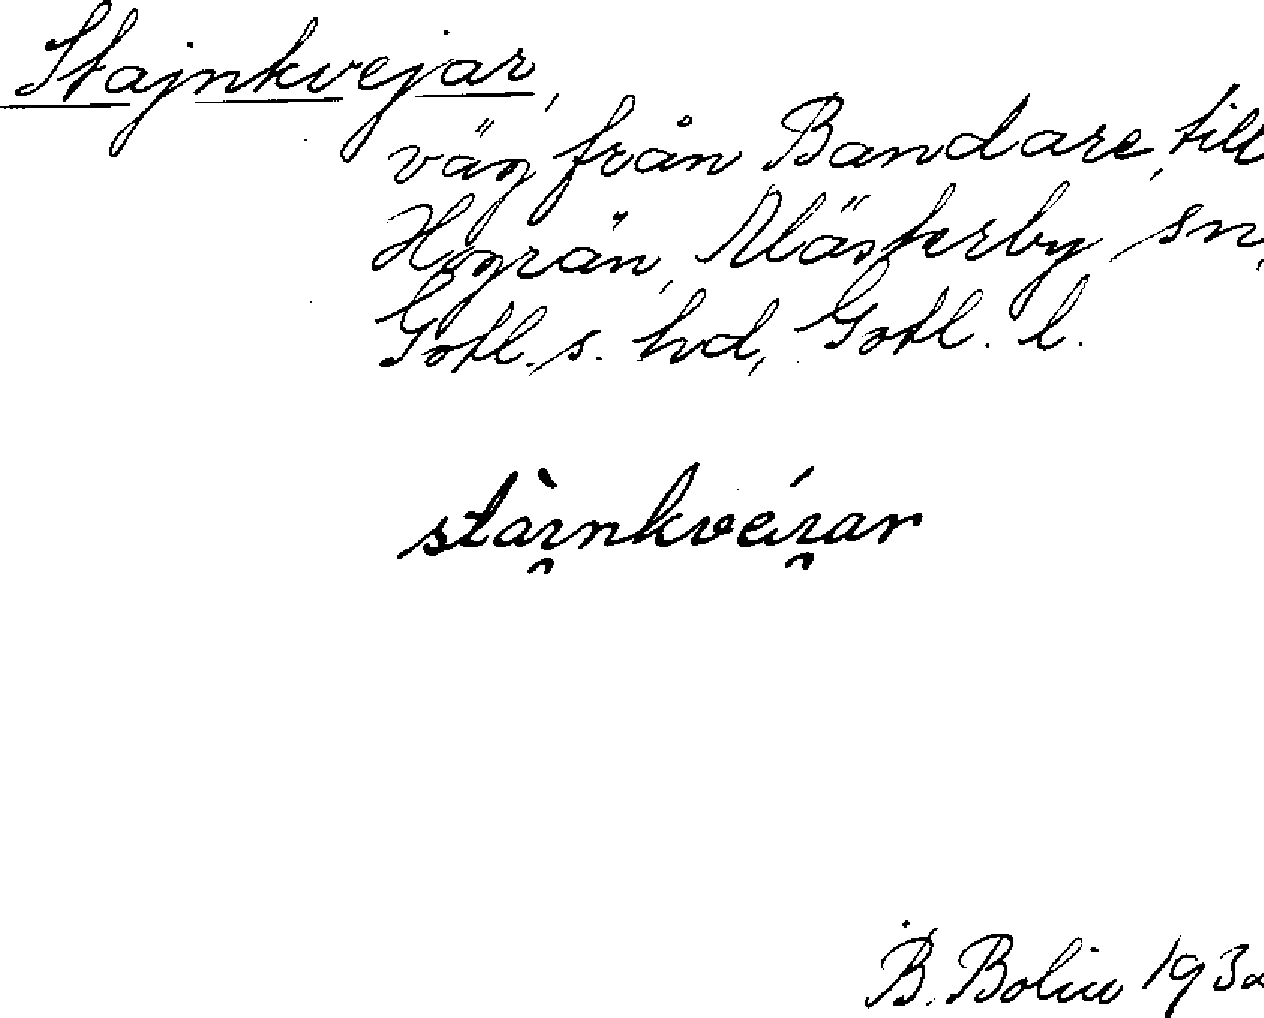 Stajnkvejar,
väg från Bandare, till
Hogrän, Mästerby sn,
Gotl. s. hvd, Gotl. l.
stàınkvéıar
B. Bolin 193